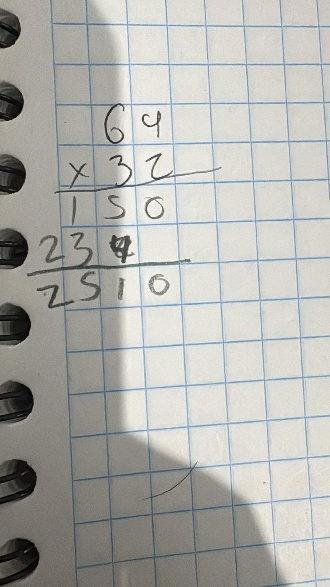 64
x 32
150
23
2510